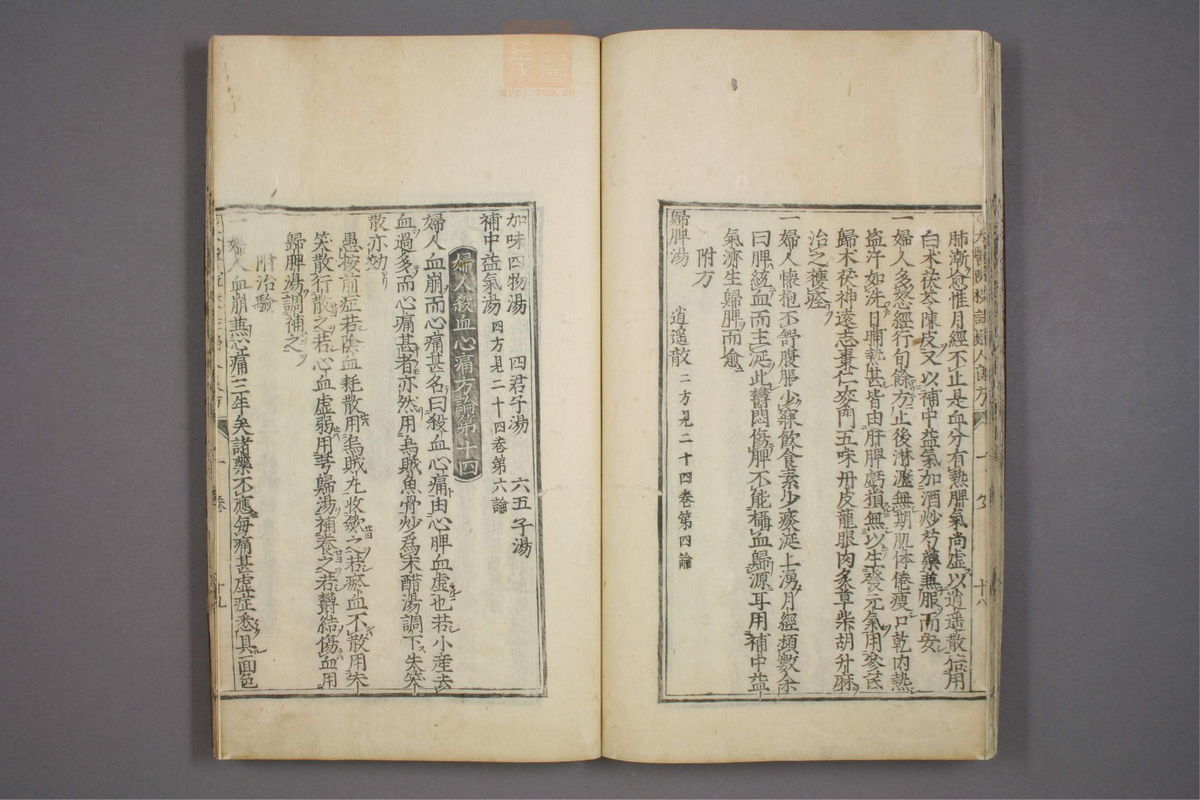 肺漸愈惟月經不止是血分有熱脾氣尚虛以逍遙散倍用
白朮茯苓陳皮又以補中益氣加酒炒芍藥兼服而安
一婦人多怒經行旬餘方止後淋瀝無期肌体倦瘦口乾内熱
盜汗如洗日晡熱甚皆由肝脾虧損無以生發元氣用參芪
歸朮茯神遠志棗仁麥門五味丹皮龍眼肉炙草柴胡升麻
治之獲痊
一婦人懷抱不舒腹脹少寐飲食素少痰涎上湧月經頻數余
曰脾統血而主涎此欝悶傷脾不能攝血歸源耳用補中益
氣濟生歸脾而愈
附方
歸脾湯 逍遙散 二方見二十四卷第四論
加味四物湯 四君子湯 六五子湯
補中益氣湯 四方見二十四卷第六論
婦人殺血心痛方論第十四
婦人血崩而心痛甚名曰殺血心痛由心脾血虛也若小産去
血過多而心痛甚者亦然用烏賊魚骨炒爲末醋湯調下失笑
散亦効
愚按前症若陰血耗散用烏賊丸收斂之若瘀血不散用失
笑散行散之若心血虛弱用芎歸湯補養之若欝結傷血用
歸脾湯調補之
附治驗
一婦人血崩兼心痛三年矣諸藥不應每痛甚虛症悉具面色